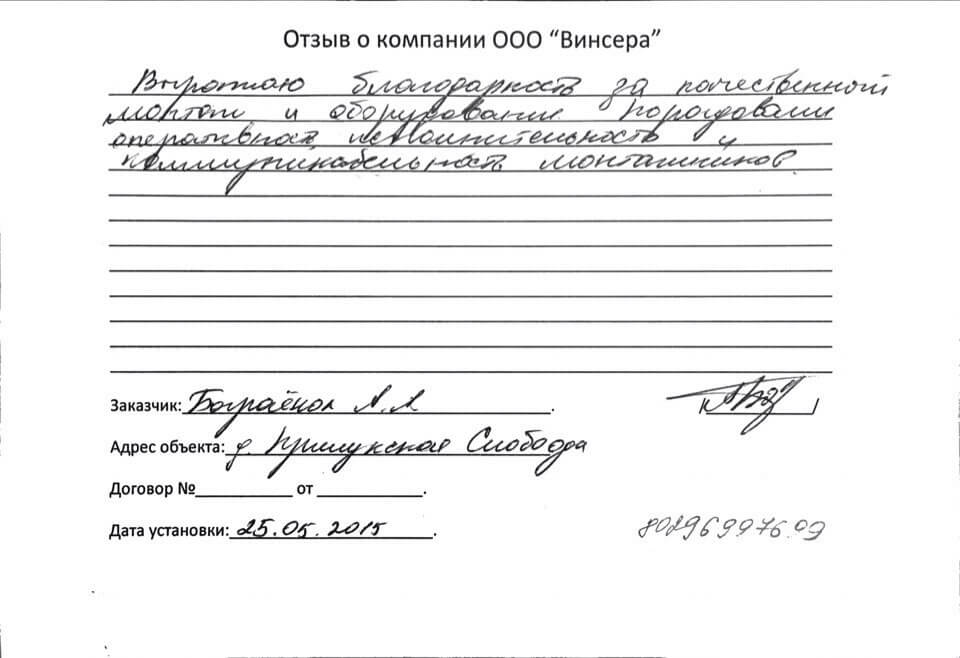 Отзыв о компании ООО “Винсера”
Выражаю благодарность за качественной
монтаж и оборудование порадовали
оперативность исполнительность и
коммуникабельность монтажников
Заказчик: А.А
Адрес объекта: д. Прилукская Слобода
Договор №__________ от ___________.
Дата установки: 25.05.2015.
80296997609